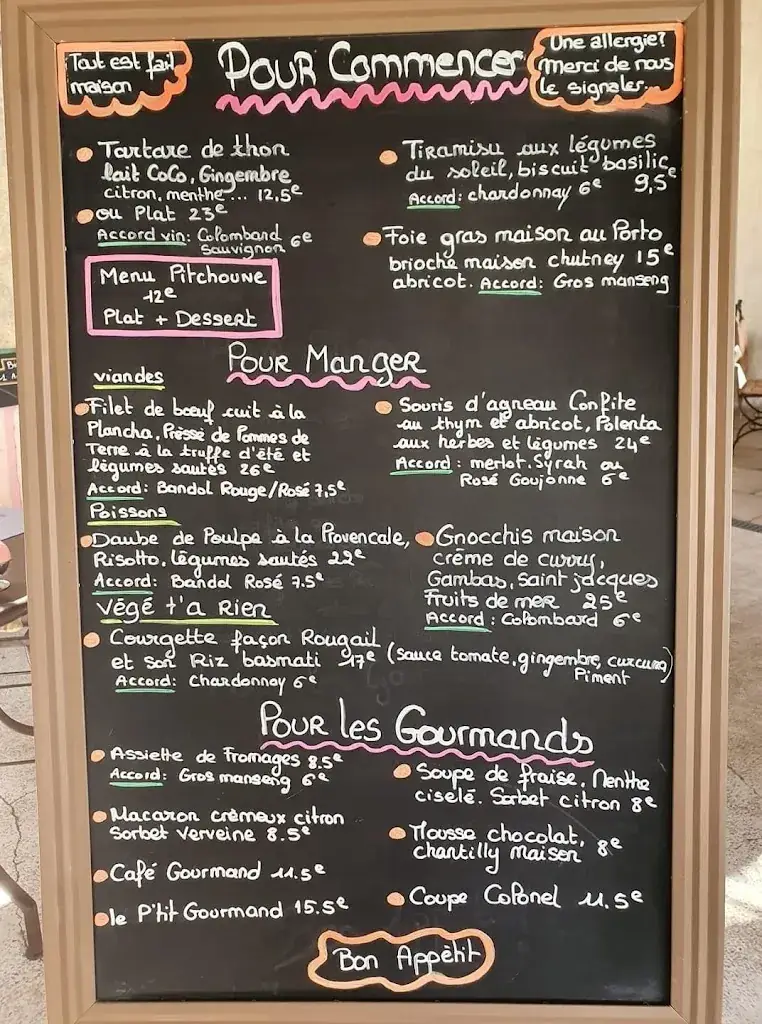 Tout est fait
maison
POUR Commencer
Une allergie?
Merci de nous
le signaler...
Tartare de thon
lait CoCo, Gingembre
citron, menthe... 12,5e
ou Plat 23e
Accord vin: Colombard
Sauvignon 6e
Tiramisu aux légumes
du soleil, biscuit basilic
Accord: chardonnay 6e 9,5e
Foie gras maison au Porto
brioche maison chutney 15e
abricot. Accord: Gros manseng
Menu Pitchoune
12e
Plat + Dessert
POUR Manger
viandes
Filet de bœuf cuit à la
Plancha, Pressé de Pommes de
Terre à la truffe d'été et
légumes sautés 26e
Accord: Bandol Rouge/Rosé 7,5e
Souris d'agneau Confite
au thym et abricot, Polenta
aux herbes et légumes 24e
Accord: merlot. Syrah ou
Rosé Goujonne 6e
Poissons
Daube de Poulpe à la Provencale,
Risotto, légumes sautés 22e
Accord: Bandol Rosé 7.5e
Gnocchis maison
crème de curry,
Gambas, Saint jacques
Fruits de mer 25e
Accord: Colombard 6e
Végé t'a Rien
Courgette façon Rougail
et son Riz basmati 17e (sauce tomate, gingembre, curcuma)
Piment
Accord: Chardonnay 6e
POUR les Gourmands
Assiette de Fromages 8.5e
Accord: Gros manseng 6e
Macaron crèmeux citron
Sorbet Verveine 8.5e
Café Gourmand 11.5e
le P'tit Gourmand 15.5e
Soupe de fraise. Menthe
ciselé. Sorbet citron 8e
Mousse chocolat, 8e
chantilly Maison
Coupe Colonel 11.5e
Bon Appètit